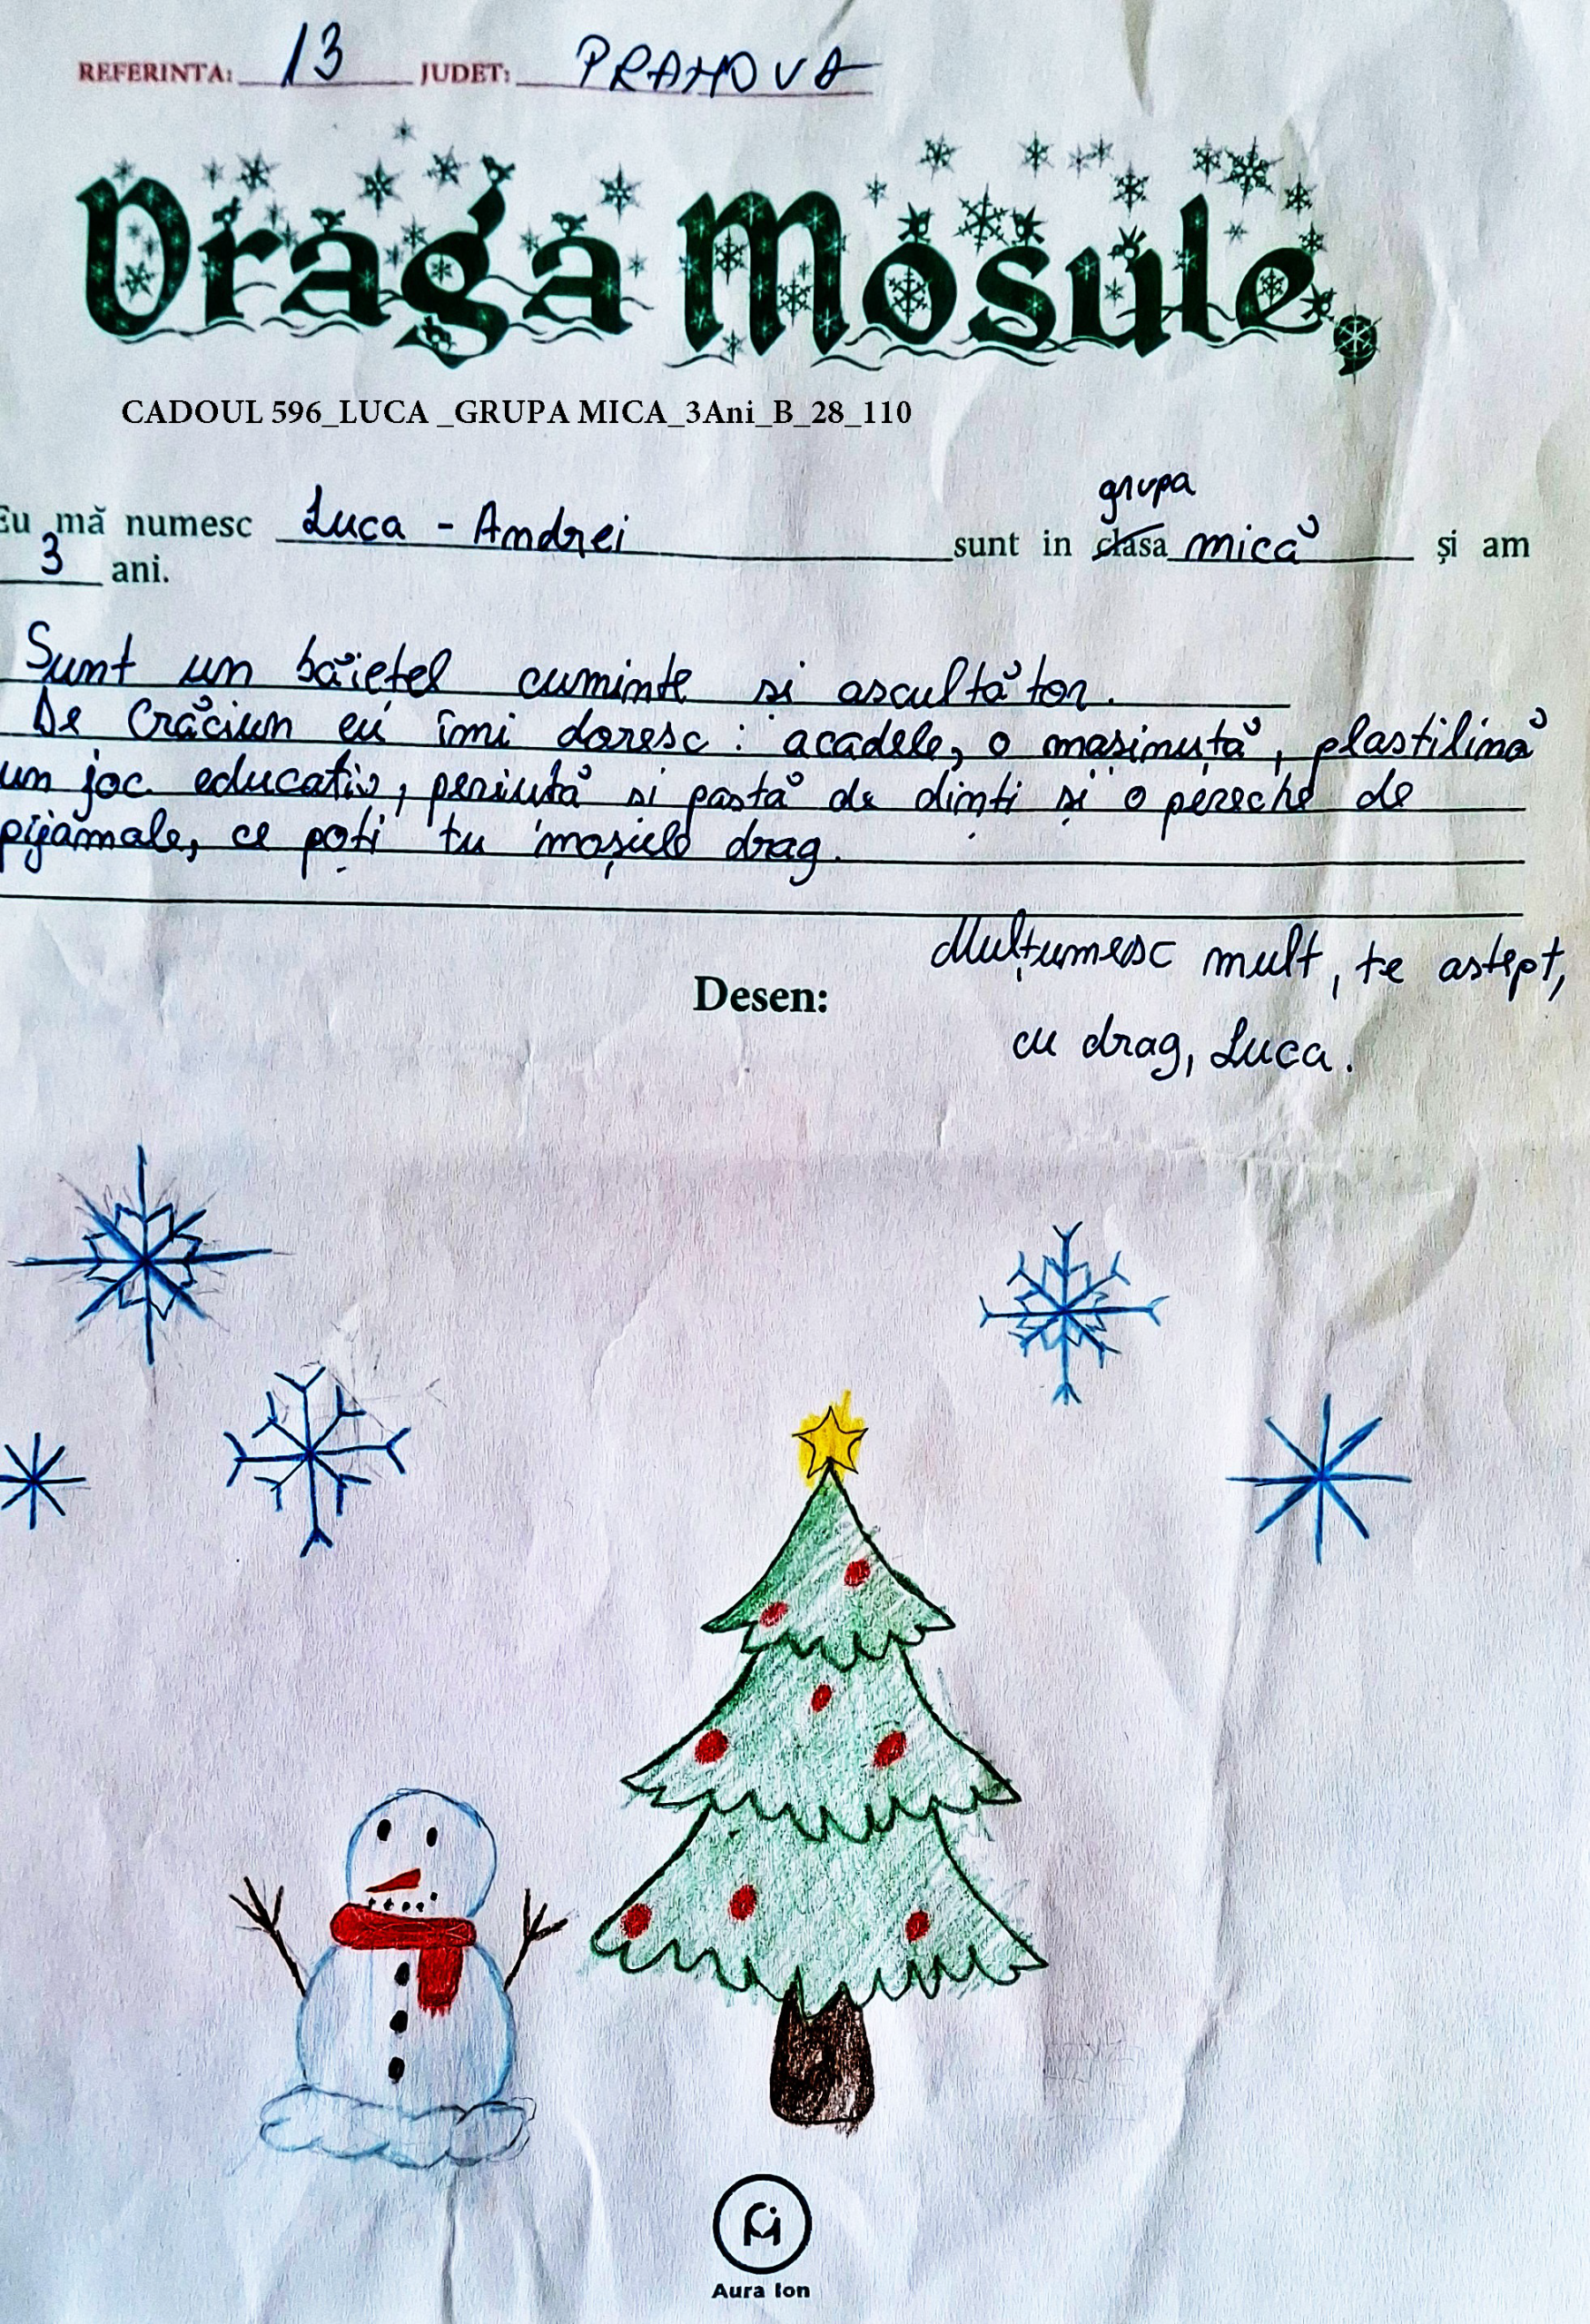 REFERINTA: 13 JUDET: PRAHOVA
Draga Mosule,
CADOUL 596_LUCA _GRUPA MICA_3Ani_B_28_110
grupa
Eu mă numesc Luca - Andrei sunt in clasa mică și am
3 ani.
Sunt un băiețel cuminte si ascultător.
De Crăciun eu îmi doresc : acadele, o mașinuță, plastilină
un joc educativ, periuță si pastă de dinti și o pereche de
pijamale, ce poți tu moșule drag.
Mulțumesc mult, te astept,
Desen:
cu drag, Luca.
Aura Ion